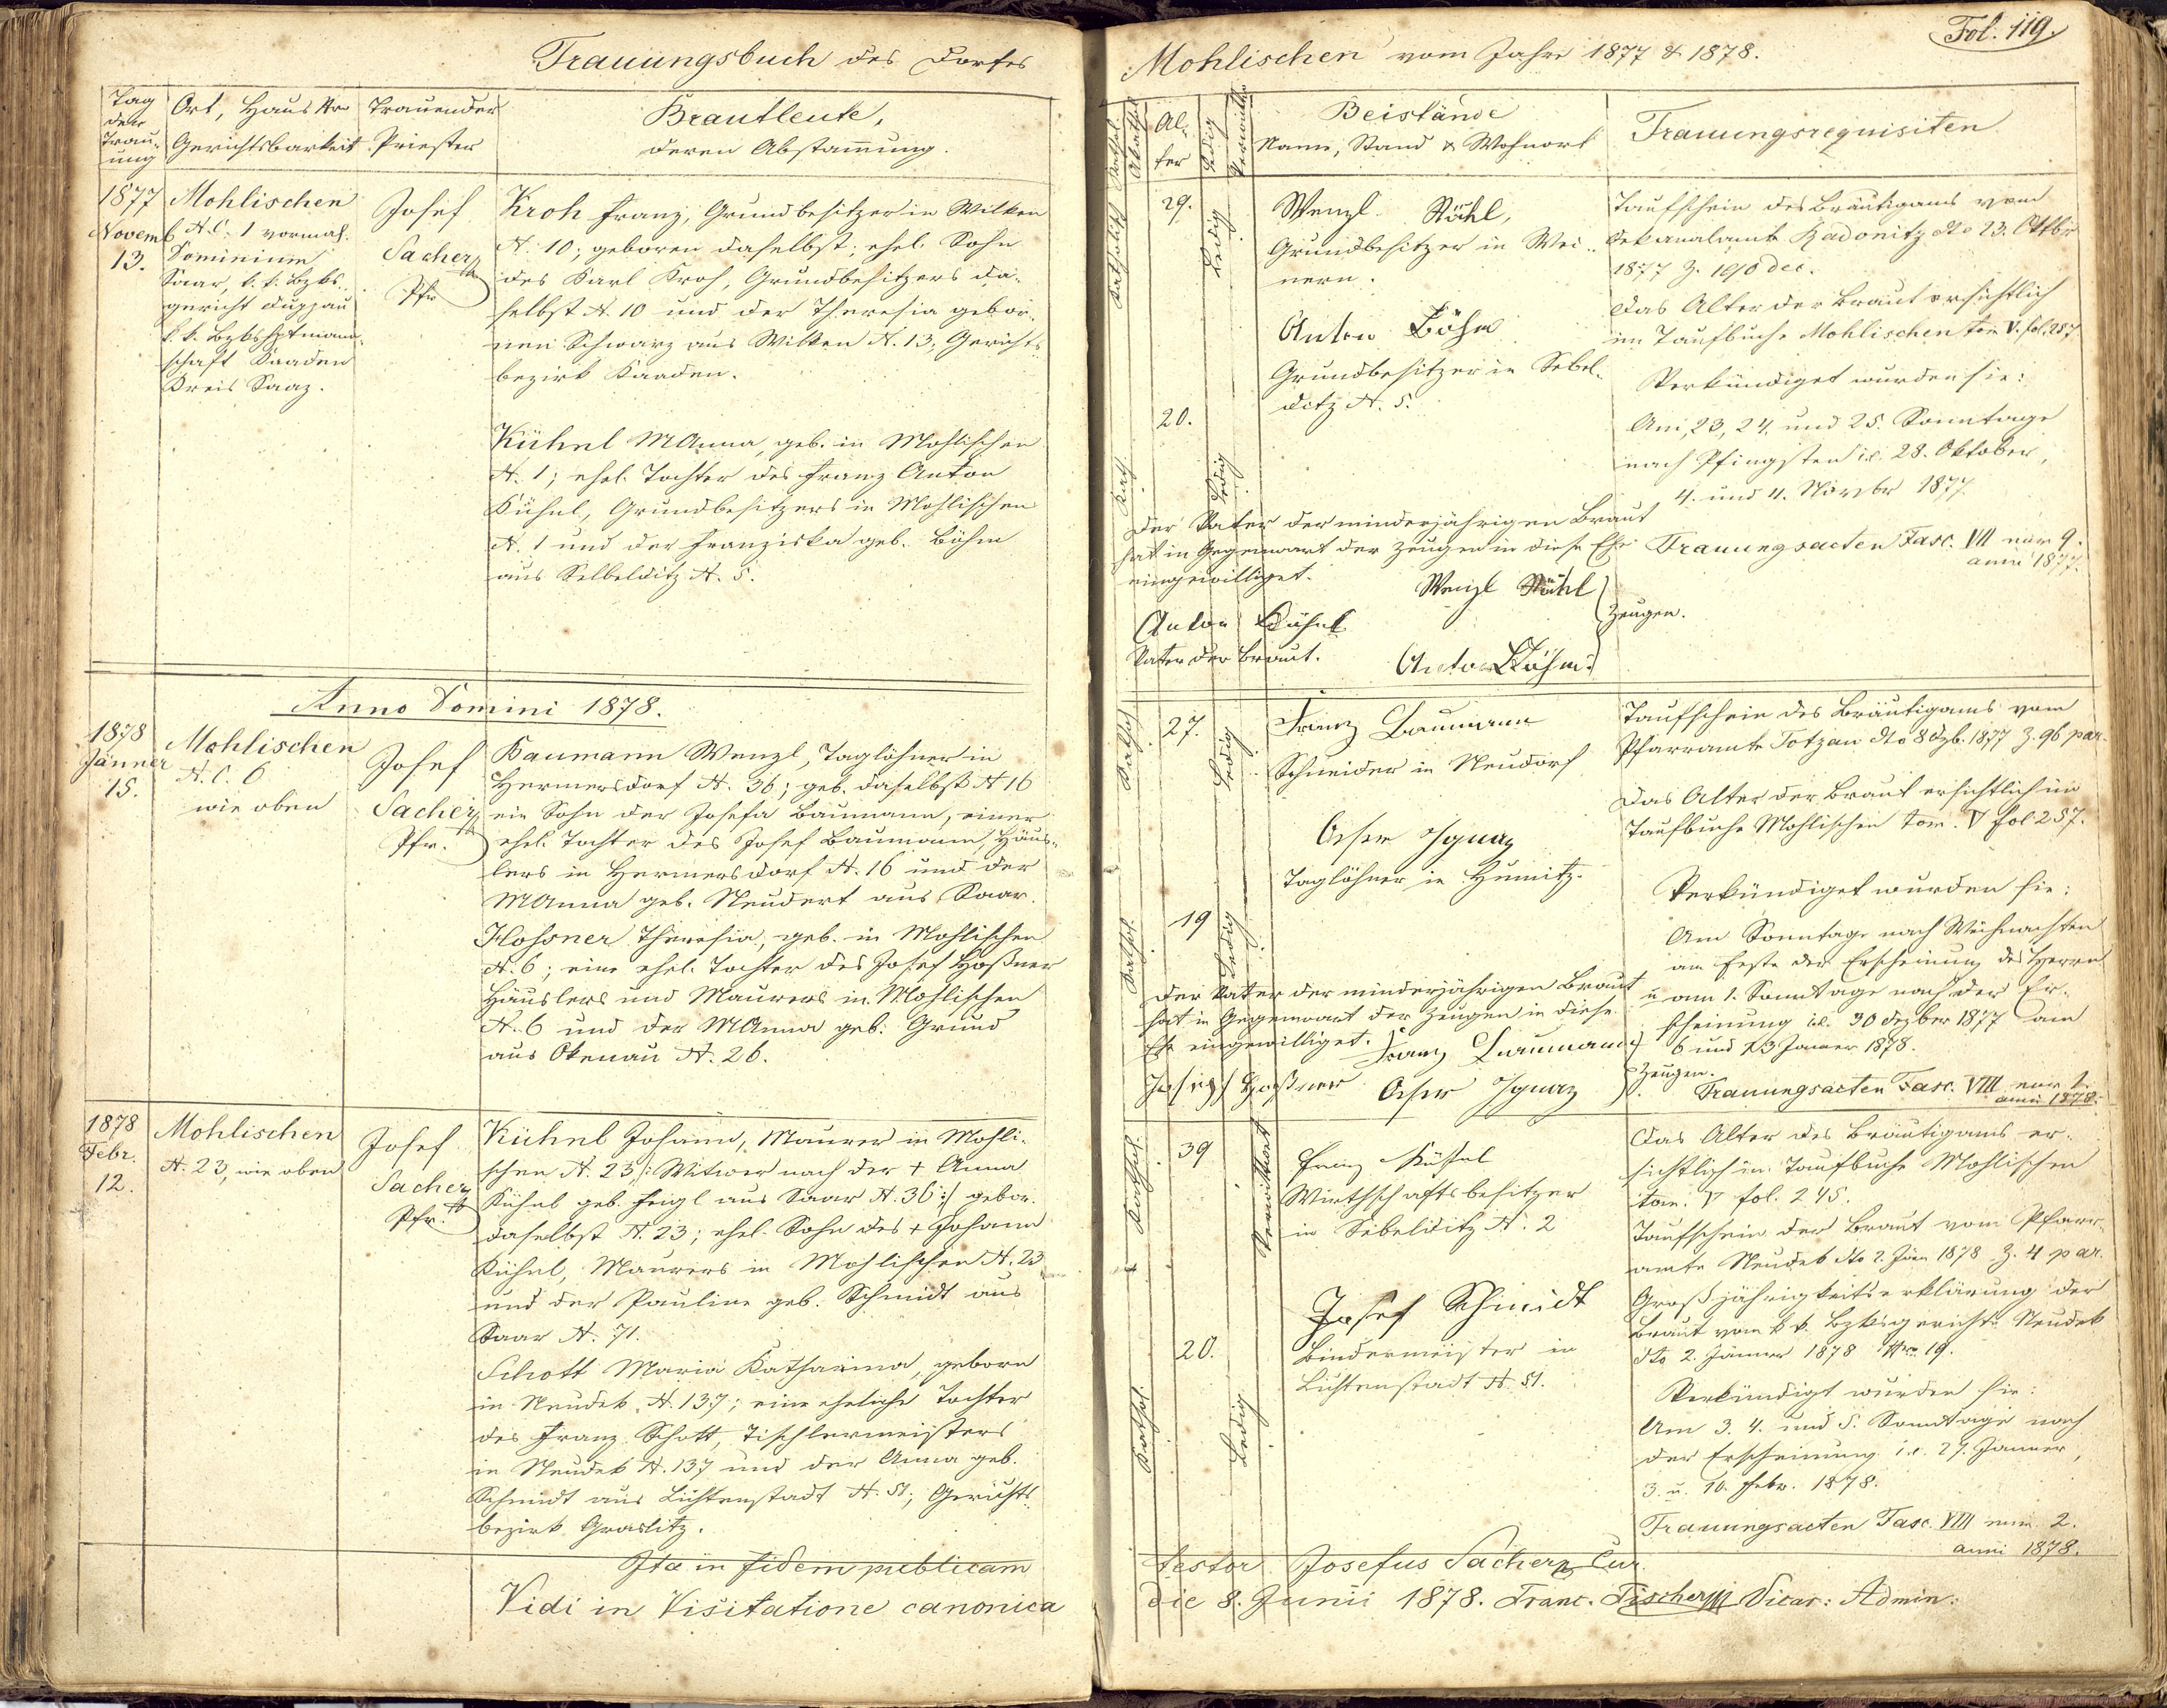 Trauungsbuch des Dorfes
Tag der Trauung
Ort, Haus Nro Gerichtsbarkeit
Trauender Priester
Brautleute,
deren Abstammung.
1877
Novemb
13.
Mohlischen
N.C. 1 vormal.
Dominium
Saar, k. k. Bzks.
gericht Duppau
k. k. Bzkshptmann-
schaft Kaaden
Kreis Saaz.
Josef
Sacher
Pfr
Kroh Franz, Grundbesitzer in Wilken
N. 10; geboren daselbst; ehel. Sohn
des Karl Kroh, Grundbesitzers da-
selbst N. 10 und der Theresia gebor-
nen Schwarz aus Wilken N. 13, Gerichts-
bezirk Kaaden.
Kühnl MAnna, geb. in Mohlischen
N. 1; ehel. Tochter des Franz Anton
Kühnl, Grundbesitzers in Mohlischen
N. 1 und der Franziska geb. Böhm
aus Selbelditz N. 5.
Anno Domini 1878.
1878
Jänner
15.
Mohlischen
N.C. 6
wie oben
Josef
Sacher
Pfr.
Baumann Wenzl, Taglöhner in
Hermersdorf N. 36; geb. daselbst N 16
ein Sohn der Josefa Baumann, einer
ehel. Tochter des Josef Baumann, Häus-
lers in Hermersdorf N. 16 und der
MAnna geb. Neudert aus Saar.
Hossner Theresia, geb. in Mohlischen
N. 6; eine ehel. Tochter des Josef Hoßner
Häuslers und Maurers in Mohlischen
N. 6 und der MAnna geb. Grund
aus Okenau N. 26.
1878
Febr.
12.
Mohlischen
N. 23, wie oben
Josef
Sacher
Pfr.
Kühnl Johann, Maurer in Mohli-
schen N. 23 /: Witwer nach der + Anna
Kühnl geb. Feigl aus Saar N. 36 :/ gebor.
daselbst N. 23; ehel. Sohn des + Johann
Kühnl, Maurers in Mohlischen N. 23
und der Pauline geb. Schmidt aus
Saar N. 71.
Schott Maria Katharina, geborn
in Neudek N. 137; eine eheliche Tochter
des Franz Schott, Tischlermeisters
in Neudek N. 137 und der Anna geb.
Schmidt aus Lichtenstadt N. 51, Gerichts-
bezirk Graslitz.
Ita in fidem publicam
Vidi in Visitatione canonica
Fol. 119.
Mohlischen vom Jahre 1877 & 1878.
Kathol.
Akathol.
Al-
ter
Ledig
Verwittw.
Beistände
Name, Stand & Wohnort
Trauungsrequisiten
Katholisch
29.
Ledig
Wenzl Stöhl,
Grundbesitzer in Wei-
nern.
Anton Böhm
Grundbesitzer in Sebel-
ditz N. 5.
Kath.
20.
Ledig
Der Vater der minderjährigen Braut
hat in Gegenwart der Zeugen in diese Ehe
eingewilliget.
Wenzl Stöhl
Anton Kühnl
Zeugen.
Vater der Braut.
Anton Böhm
Taufschein des Bräutigams vom
Dekanalamte Radonitz dto 23. Oktbr
1877 Z. 190 dec.
Das Alter der Braut ersichtlich
im Taufbuche Mohlischen tom V. fol. 257
Verkündiget wurden sie:
Am 23, 24. und 25. Sonntage
nach Pfingsten i.e. 28. Oktober,
4. und 11. Novbr 1877
Trauungsacten Fasc. VII num 9.
anni 1877.
Kathol
27.
Ledig
Franz Baumann
Schneider in Neudorf
Ignaz
Taglöhner in Humitz.
Kathol.
19
Ledig
Der Vater der minderjährigen Braut
hat in Gegenwart der Zeugen in diese
Ehe eingewilliget.
Franz Baumann
Zeugen.
Josef Hoßner
Ignaz
Taufschein des Bräutigams vom
Pfarramte Totzau dto 8 Dzb. 1877 Z. 96 par.
Das Alter der Braut ersichtlich im
Taufbuche Mohlischen tom. V fol 257.
Verkündiget wurden sie:
Am Sonntage nach Weihnachten
am Feste der Erscheinung des Herrn
u am 1. Sonntage nach der Er-
scheinung i.e. 30 Dezber 1877 am
6 und 13 Jänner 1878.
Trauungsacten Fasc. VIII num 1.
anni 1878.
Kathol.
39
Verwittwet
Franz Kühnl
Wirthschaftsbesitzer
in Sebelditz N. 2
Josef Schmidt
Bindermeister in
Lichtenstadt N. 51.
Kathol.
20.
Ledig
Das Alter des Bräutigams er-
sichtlich im Taufbuche Mohlischen
tom. V fol. 245.
Taufschein der Braut vom Pfarr-
amte Neudek dto 2. Jän 1878 Z. 4 par.
Großjährigkeitserklärung der
Braut vom k. k. Bzksgerichte Neudek
dto 2. Jänner 1878 Nro. 19.
Verkündigt wurden sie:
Am 3. 4. und 5. Sonntage nach
der Erscheinung i.e. 27. Jänner,
3. u. 10. Febr. 1878.
Trauungsacten Fasc. VIII num. 2.
anni 1878.
testor Josefus Sacher Cur.
die 8. Junii 1878. Franc. Fischer Vicar: Admin: